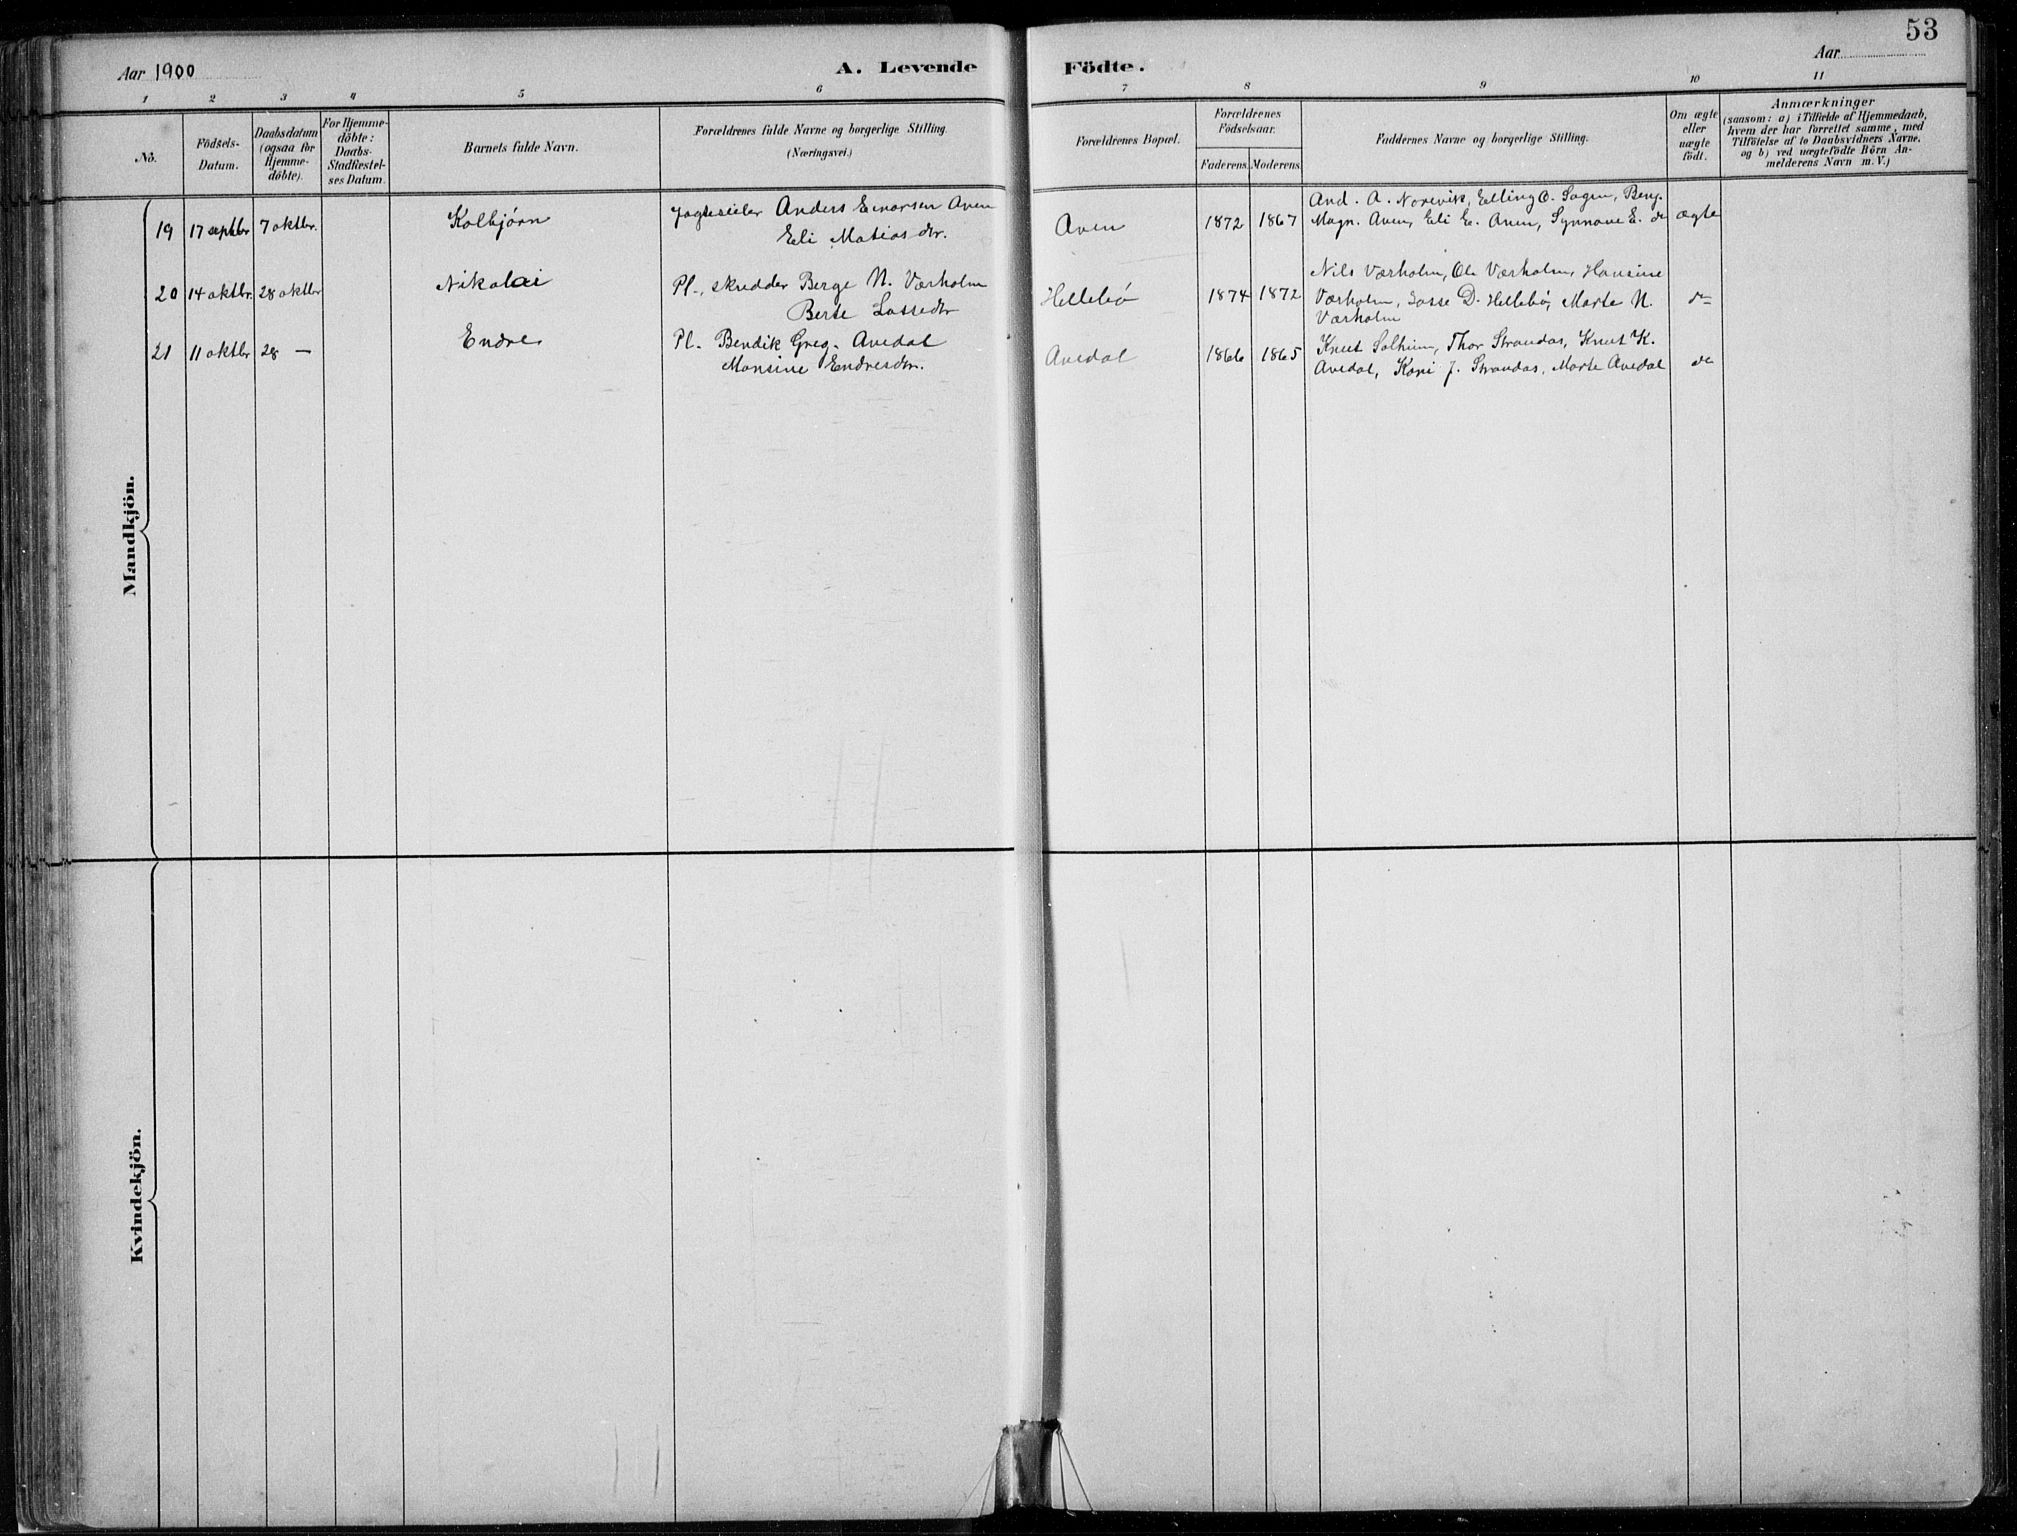 53
Aar 1900
A. Levende
Födte.
Aar
1 2 3 4 5 6 7 8 9 10 11
No.
Födsels-
Datum.
Daabsdatum
(ogsaa for
Hjemme-
döbte).
For Hjemme-
döbte:
Daabs-
Stadfæstel-
ses Datum.
Barnets fulde Navn.
Forældrenes fulde Navne og borgerlige Stilling.
(Næringsvei.)
Forældrenes Bopæl.
Forældrenes
Födselsaar.
Faderens. Moderens.
Faddernes Navne og borgerlige Stilling.
Om ægte
eller
uægte
födt.
Anmærkninger
(saasom: a) i Tilfælde af Hjemmedaab,
hvem der har forrettet samme, med
Tilföielse af to Daabsvidners Navne.
og b) ved uægtefödte Börn An-
melderens Navn m. V.)
Mandkjön.
19 17 septbr 7 oktbr. Kolbjørn
Jagteseiler Anders Einarsen Aven
Eli Matiasdtr.
Aven 1872 1867
And. A. Norevik, Elling O. Sagen, Berg.
Magn. Aven, Eli E. Aven, Synnøve E. do
ægte
20 14 oktbr. 28 oktbr Nikolai
Pl., skredder Berge N. Værholm
Berte Lassedtr
Hellebø 1874 1872
Nils Værholm, Ole Værholm, Hansine
Værholm, Lasse D. Hellebø, Marte N.
Værholm
do
21 11 oktbr 28 — Endre
Pl. Bendik Greg. Avedal
Mansine Endresdtr.
Avedal 1866 1865
Knut Solheim, Thor Strandos, Knut K.
Avedal, Kari J. Strandos, Marte Avedal
do
Kvindekjön.